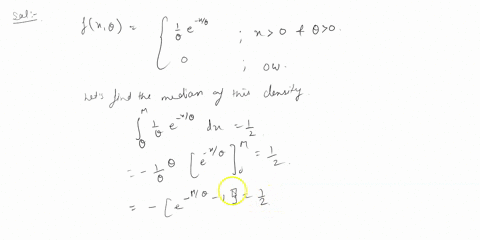 Sol:-
f(x,θ) = { 1/θ e^{-x/θ} ; x>0 & θ>0.
0 ; ow.
Let's find the median of this density.
∫_0^M 1/θ e^{-x/θ} dx = 1/2
= - 1/θ θ [e^{-x/θ}]_0^M = 1/2.
= - [e^{-M/θ} - 1] = 1/2